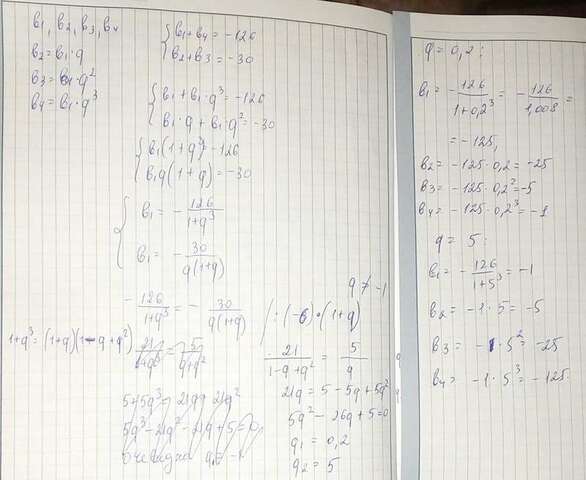 b₁, b₂, b₃, b₄
b₂ = b₁·q
b₃ = b₁·q²
b₄ = b₁·q³
{ b₁ + b₄ = -126
b₂ + b₃ = -30
{ b₁ + b₁·q³ = -126
b₁·q + b₁·q² = -30
{ b₁(1+q³) = -126
b₁q(1+q) = -30
{ b₁ = - 126/(1+q³)
b₁ = - 30/(q(1+q))
q ≠ -1
- 126/(1+q³) = - 30/(q(1+q)) | :(-6)·(1+q)
1+q³ = (1+q)(1-q+q²)
21/(1+q³) = 5/(q+q²)
5+5q³ = 21q+21q²
5q³-21q²-21q+5=0
очевидно q = -1
21/(1-q+q²) = 5/q
21q = 5 - 5q + 5q²
5q² - 26q + 5 = 0
q₁ = 0,2
q₂ = 5
q = 0,2:
b₁ = - 126/(1+0,2³) = - 126/1,008 =
= -125,
b₂ = -125·0,2 = -25
b₃ = -125·0,2² = -5
b₄ = -125·0,2³ = -1
q = 5:
b₁ = - 126/(1+5³) = -1
b₂ = -1·5 = -5
b₃ = -1·5² = -25
b₄ = -1·5³ = -125